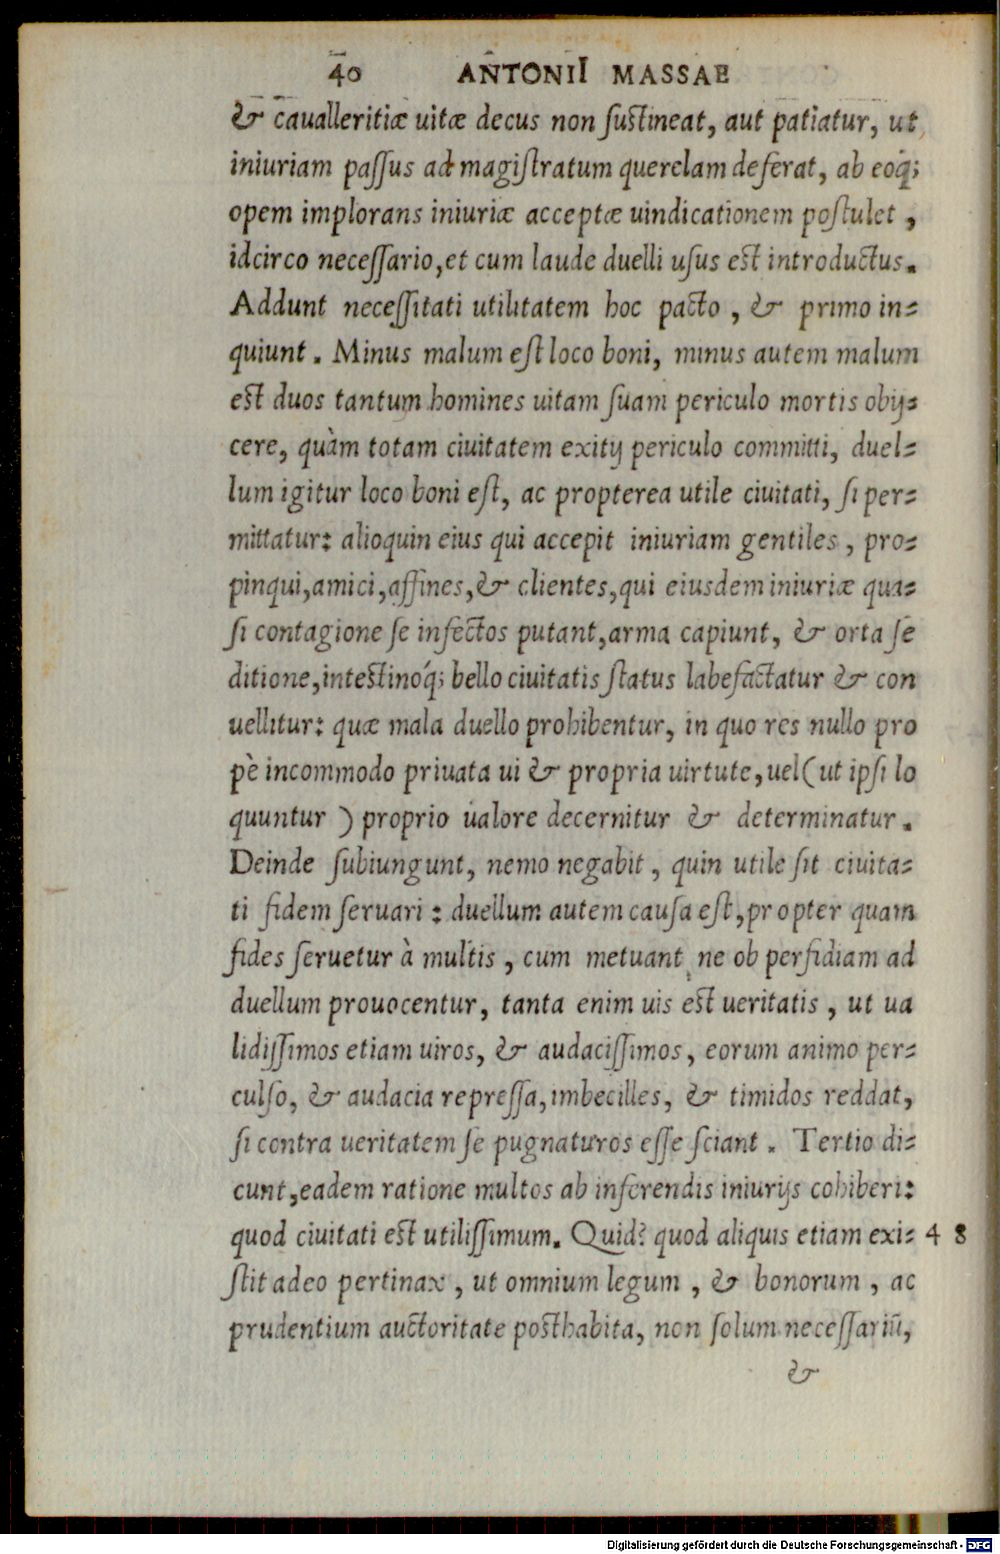 40 ANTONII MASSAE
& caualleritiæ uitæ decus non ſuſtineat, aut patiatur, ut
iniuriam paſſus ad magiſtratum querelam deferat, ab eoq́;
opem implorans iniuriæ acceptæ uindicationem poſtulet,
idcirco neceſſario, et cum laude duelli uſus eſt introductus.
Addunt neceſſitati utilitatem hoc pacto, & primo in=
quiunt. Minus malum eſt loco boni, minus autem malum
eſt duos tantum homines uitam ſuam periculo mortis obij=
cere, quàm totam ciuitatem exitij periculo committi, duel=
lum igitur loco boni eſt, ac propterea utile ciuitati, ſi per=
mittatur: alioquin eius qui accepit iniuriam gentiles, pro=
pinqui, amici, affines, & clientes, qui eiusdem iniuriæ qua=
ſi contagione ſe infectos putant, arma capiunt, & orta ſe
ditione, inteſtinoq́; bello ciuitatis ſtatus labefactatur & con
uellitur: quæ mala duello prohibentur, in quo res nullo pro
pè incommodo priuata ui & propria uirtute, uel (ut ipſi lo
quuntur) proprio ualore decernitur & determinatur.
Deinde ſubiungunt, nemo negabit, quin utile ſit ciuita=
ti fidem ſeruari: duellum autem cauſa eſt, propter quam
fides ſeruetur à multis, cum metuant ne ob perfidiam ad
duellum prouocentur, tanta enim uis eſt ueritatis, ut ua
lidiſſimos etiam uiros, & audaciſſimos, eorum animo per=
culſo, & audacia repreſſa, imbecilles, & timidos reddat,
ſi contra ueritatem ſe pugnaturos eſſe ſciant. Tertio di=
cunt, eadem ratione multos ab inferendis iniurijs cohiberi:
quod ciuitati eſt utiliſſimum. Quid? quod aliquis etiam exi= 48
ſtit adeo pertinax, ut omnium legum, & bonorum, ac
prudentium auctoritate poſthabita, non ſolum neceſſariū,
&
Digitalisierung gefördert durch die Deutsche Forschungsgemeinschaft - DFG